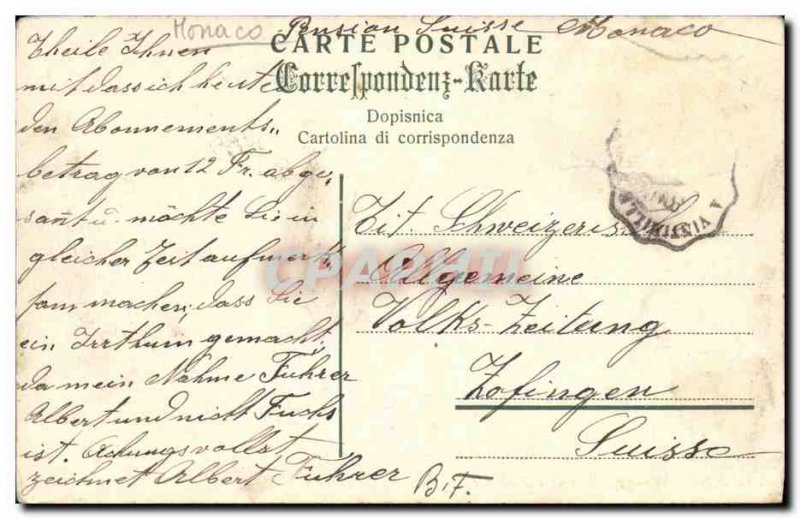 Monaco
Pension Suisse Monaco
CARTE POSTALE
Correspondenz-Karte
Dopisnica
Cartolina di corrispondenza
Theile Ihnen
mit dass ich heute
den Abonnements„
betrag von 12 Fr. abge„
sant u. möchte Sie in
gleicher Zeit aufmerk„
sam machen, dass Sie
ein Irrthum gemacht,
da mein Nahme Fuhrer
Albert und nicht Fuchs
ist. Achungsvollst
zeichnet Albert Fuhrer
B.F.
Tit. Schweizerische
Allgemeine
Volks-Zeitung
Zofingen
Suisse
A VINTIMILLE
CPARHTI